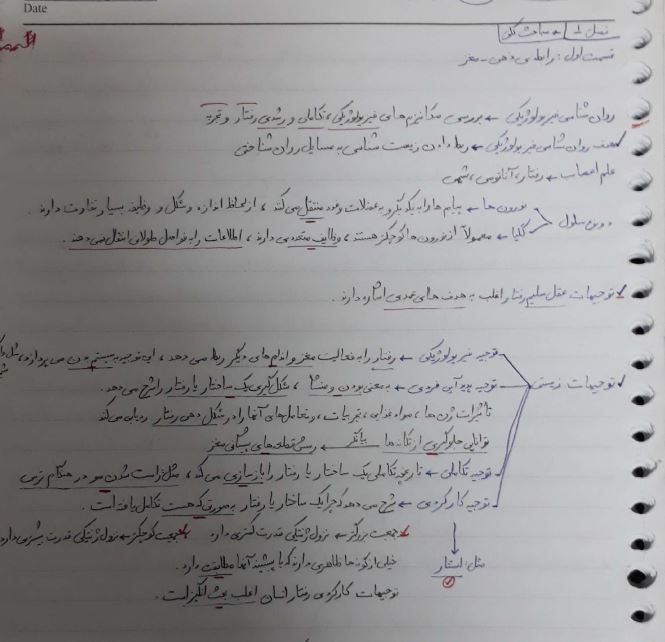 Date
فصل ۱ ← مباحث کلی
قسمت اول: رابطه‌ی ذهن - مغز
روان شناسی فیزیولوژیکی ← بررسی مکانیزم های فیزیولوژیکی، تکاملی و رشدی رفتار و تجربه
هدف روان شناسی فیزیولوژیکی ← ربط دادن زیست شناسی به مسایل روان شناختی
علم اعصاب ← رفتار، آناتومی، شیمی
نورون ها ← پیام ها را به یکدیگر و به عضلات و غدد منتقل می کند، از لحاظ اندازه و شکل و وظیفه بسیار تفاوت دارند.
دو نوع سلول
گلیا ← معمولاً از نورون ها کوچکتر هستند، وظایف متعددی دارند، اطلاعات را به فواصل طولانی انتقال نمی دهند.
توجیهات عقل سلیم رفتار اغلب به هدف های عمدی اشاره دارند.
توجیه فیزیولوژیکی ← رفتار را به فعالیت مغز و اندام های دیگر ربط می دهد، این توجیه به سیستم بدن می پردازد، مثل
توجیهات زیستی
توجیه پدیدآیی فردی ← به معنی بودن و منشأ، شکل گیری یک ساختار یا رفتار را شرح می دهد.
تأثیرات ژن ها، مواد غذایی، تجربیات، و تعامل های آنها را در شکل دهی رفتار ردیابی می کند
توانایی جلوگیری از تکانه ها ← بیانگر رسش قطعه های پیشانی مغز
توجیه تکاملی ← تاریخچه تکاملی یک ساختار یا رفتار را بازسازی می کند، مثل راست شدن مو در هنگام ترس
توجیه کارکردی ← شرح می دهد که چرا یک ساختار یا رفتار به صورتی که هست تکامل یافته است.
جمعیت بزرگتر ← نزول ژنتیکی قدرت کمتری دارد جمعیت کوچکتر ← نزول ژنتیکی قدرت بیشتری دارد
مثل استتار
خیلی از گونه ها ظاهری دارند که با پیشینه آنها مطابقت دارد.
توجیهات کارکردی رفتار انسان اغلب بحث انگیز است.